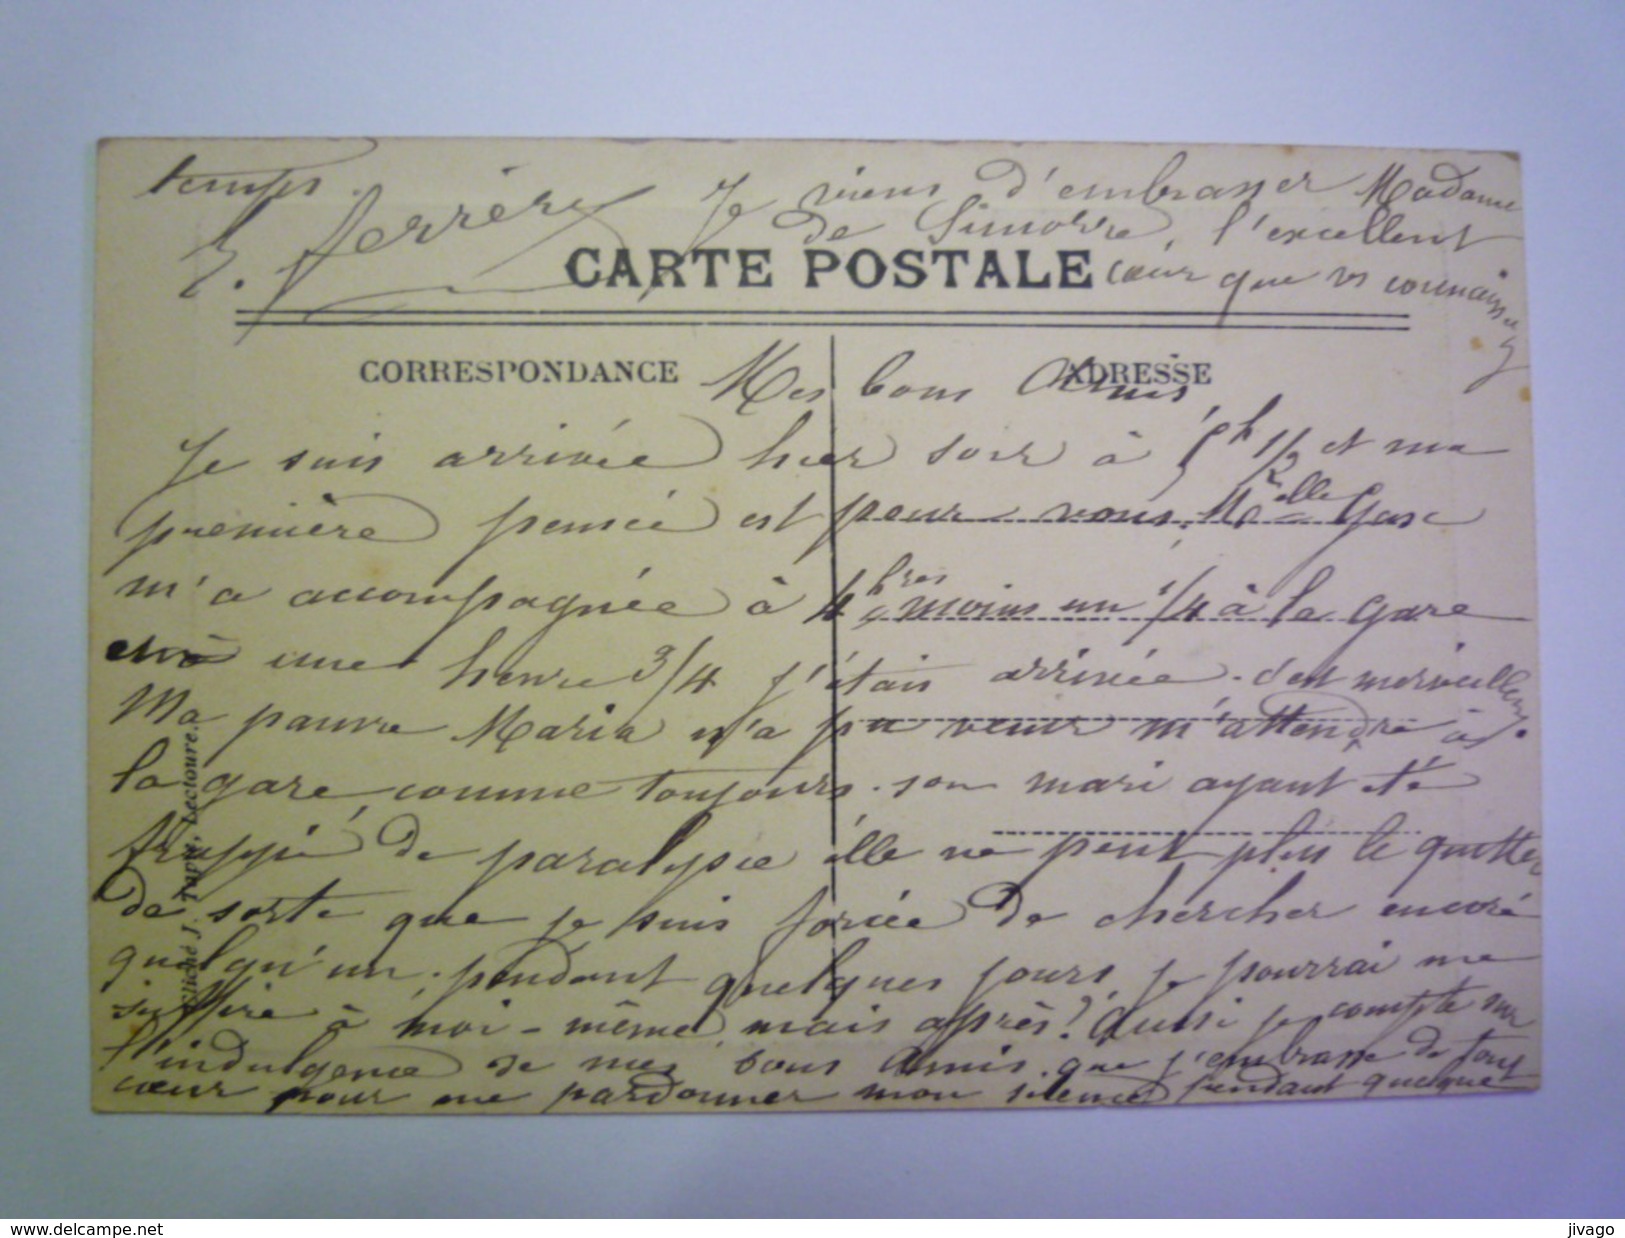 temps.
E. Ferrère
Je viens d'embrasser Madame
de Simorre, l'excellent
cœur que vs connaissez
CARTE POSTALE
CORRESPONDANCE
ADRESSE
Mes bons Amis,
Je suis arrivée hier soir à 5h 1/2 et ma
première pensée est pour vous. Melle Gase
m'a accompagnée à 4 hres moins un 1/4 à la gare
une heure 3/4 j'étais arrivée. c'est merveilleux.
Ma pauvre Maria n'a pu venir m'attendre à
la gare, comme toujours. son mari ayant été
frappé de paralysie elle ne peut plus le quitter
de sorte que je suis forcée de chercher encore
quelqu'un. pendant quelques jours, je pourrai me
suffire à moi-même, mais après? Aussi je compte sur
l'indulgence de mes bons Amis. que j'embrasse de tout
cœur pour me pardonner mon silence pendant quelque
Cliché J. Tapie, Lectoure.
www.delcampe.net
jivago